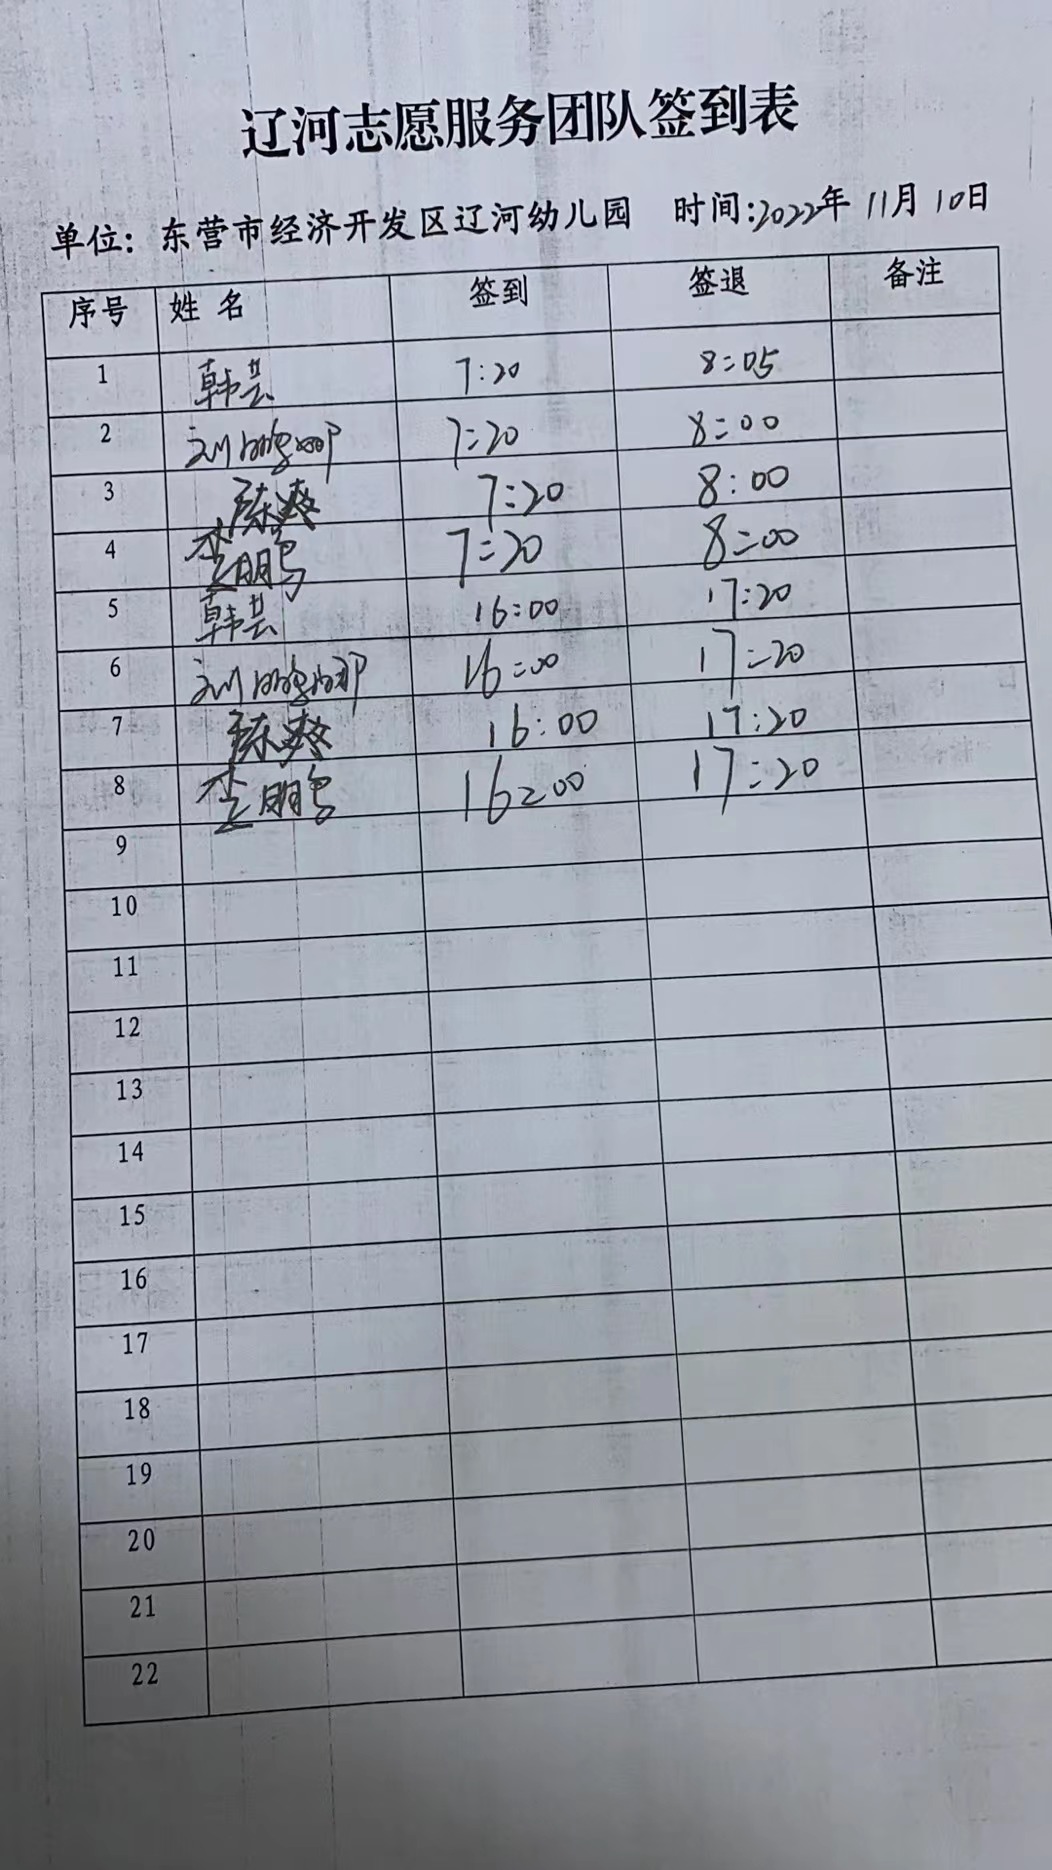 辽河志愿服务团队签到表
单位: 东营市经济开发区辽河幼儿园 时间:2022年 11月 10日
序号 姓 名 签到 签退 备注
1 韩芸 7:20 8:05
2 刘 7:20 8:00
3 陈爽 7:20 8:00
4 李鹏 7:20 8:00
5 韩芸 16:00 17:20
6 刘 16:00 17:20
7 陈爽 16:00 17:20
8 李鹏 16:00 17:20
9
10
11
12
13
14
15
16
17
18
19
20
21
22